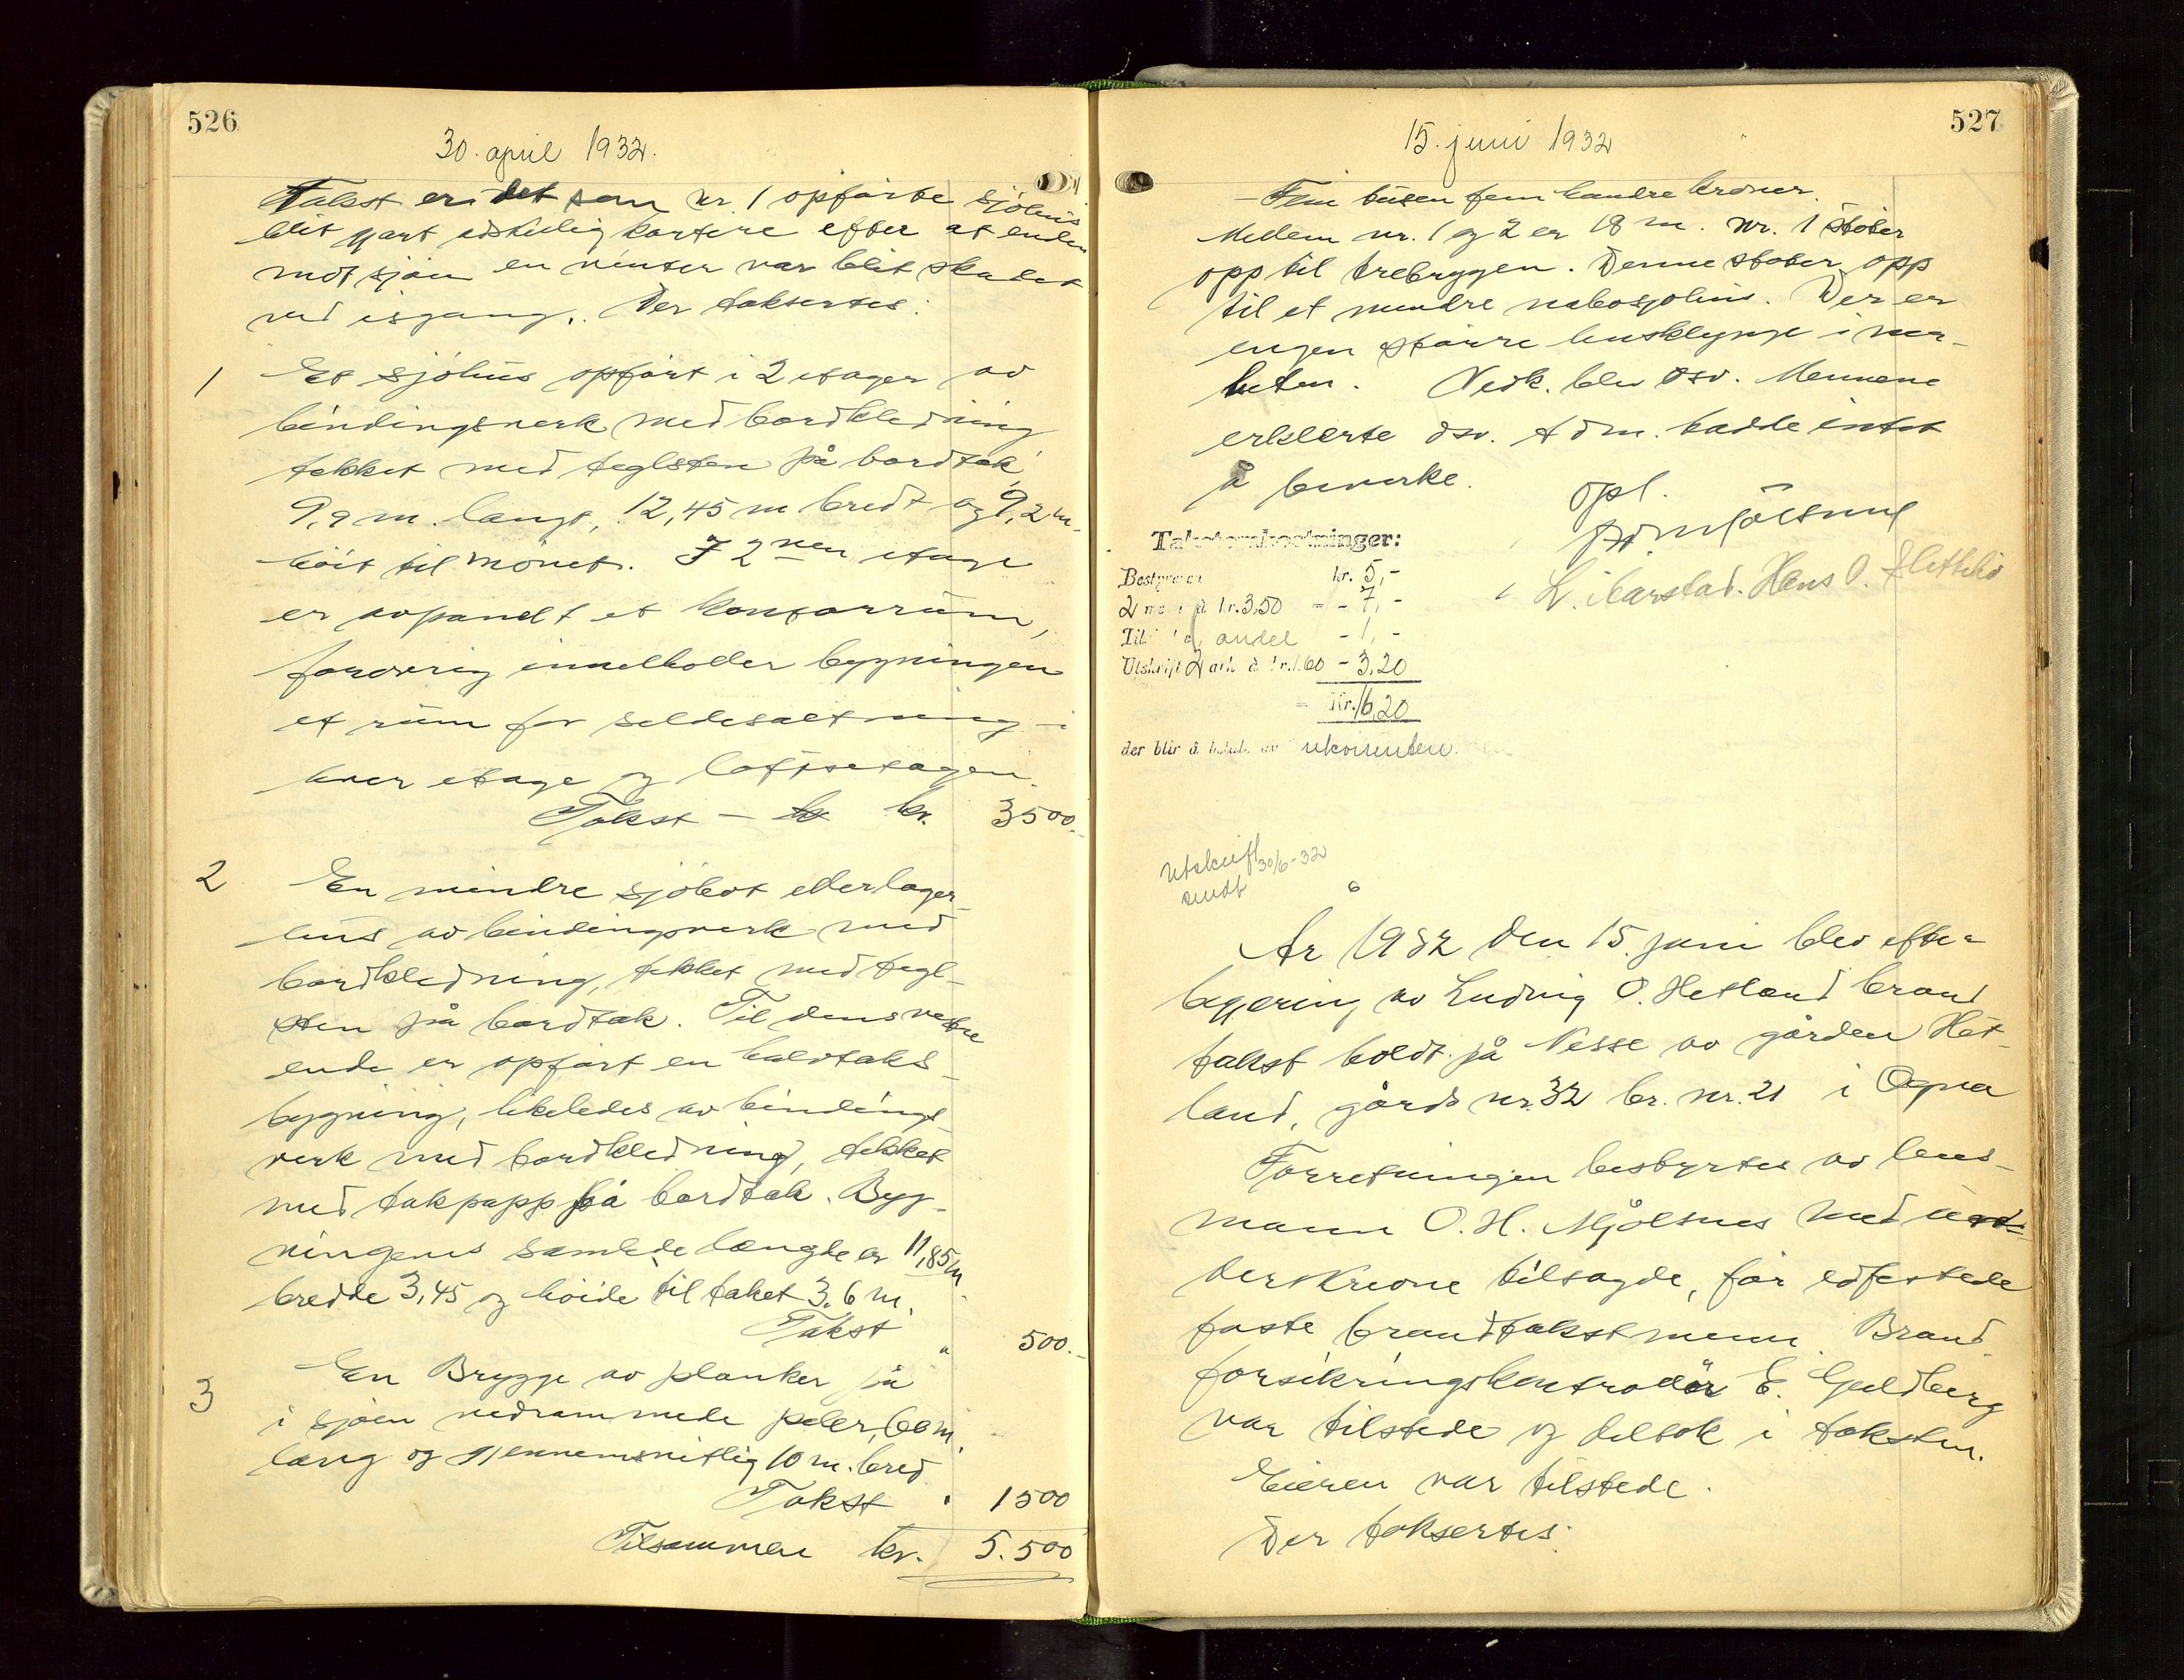 526
30. april 1932.
Takst er det som nr. 1 opførte sjøhus
blit gjort adskillig kortere efter at enden
mot sjøen en vinter var blit skadet
ved isgang. Der taksertes:
1 Et sjøhus opført i 2 etager av
bindingsverk med bordkledning
tekket med teglsten på bordtak,
9,9 m. langt, 12,45 m bredt og 9,2 m.
høit til mønet. I 2nen etage
er avpanelt et kontorrum,
forøvrig inneholder bygningen
et rum for sildesaltning i
hver etage og loftsetagen.
Takst - kr. 3500.-
2 En mindre sjøbot eller lager-
hus av bindingsverk med
bordkledning, tekket med tegl-
sten på bordtak. Til dens vestre
ende er opført en halvtaks-
bygning, likeledes av bindings-
verk med bordkledning, tekket
med takpapp på bordtak. Byg-
ningens samlede længde er 11,85 m.
bredde 3,45 og høide til taket 3,6 m.
Takst " 500.-
3 En Brygge av planker på
i sjøen nedrammede peler, 60 m.
lang og gjennemsnitlig 10 m. bred
Takst " 1500
Tilsammen kr. 5.500
527
15. juni 1932
- Fem tusen fem hundre kroner.
Mellem nr. 1 og 2 er 18 m. Nr. 1 støter
opp til trebryggen. Denne støter opp
til et mindre nabosjøhus. Der er
ingen større husklynge i nær-
heten. Vedk. blev osv. Mennene
erklærte osv. Adm. hadde intet
å bemerke.
Opl.
O H Mjølsnes
L. Varstad. Hans O. Slettebø
Takstomkostninger:
Bestyreren kr. 5,-
2 menn à kr. 3,50 - 7,-
andel - 1,-
Utskrift 2 ark à kr. 1.60 - 3,20
Kr. 16,20
der blir å betale av rekvirenten.
Utskrift 30/6-32
sendt
År 1932 den 15. juni blev efter
begjæring av Ludvig O. Hetland brand
takst holdt på Nesse av gården Het-
land, gårds nr. 32 br. nr. 21 i Ogna
Forretningen bestyrtes av lens-
mann O. H. Mjølsnes med und-
derskrevne tilsagde, før edfestede
faste brandtakstmenn. Brand-
forsikringskontrollør E. Guldberg
var tilstede og deltok i taksten.
Eieren var tilstede.
Der taksertes: